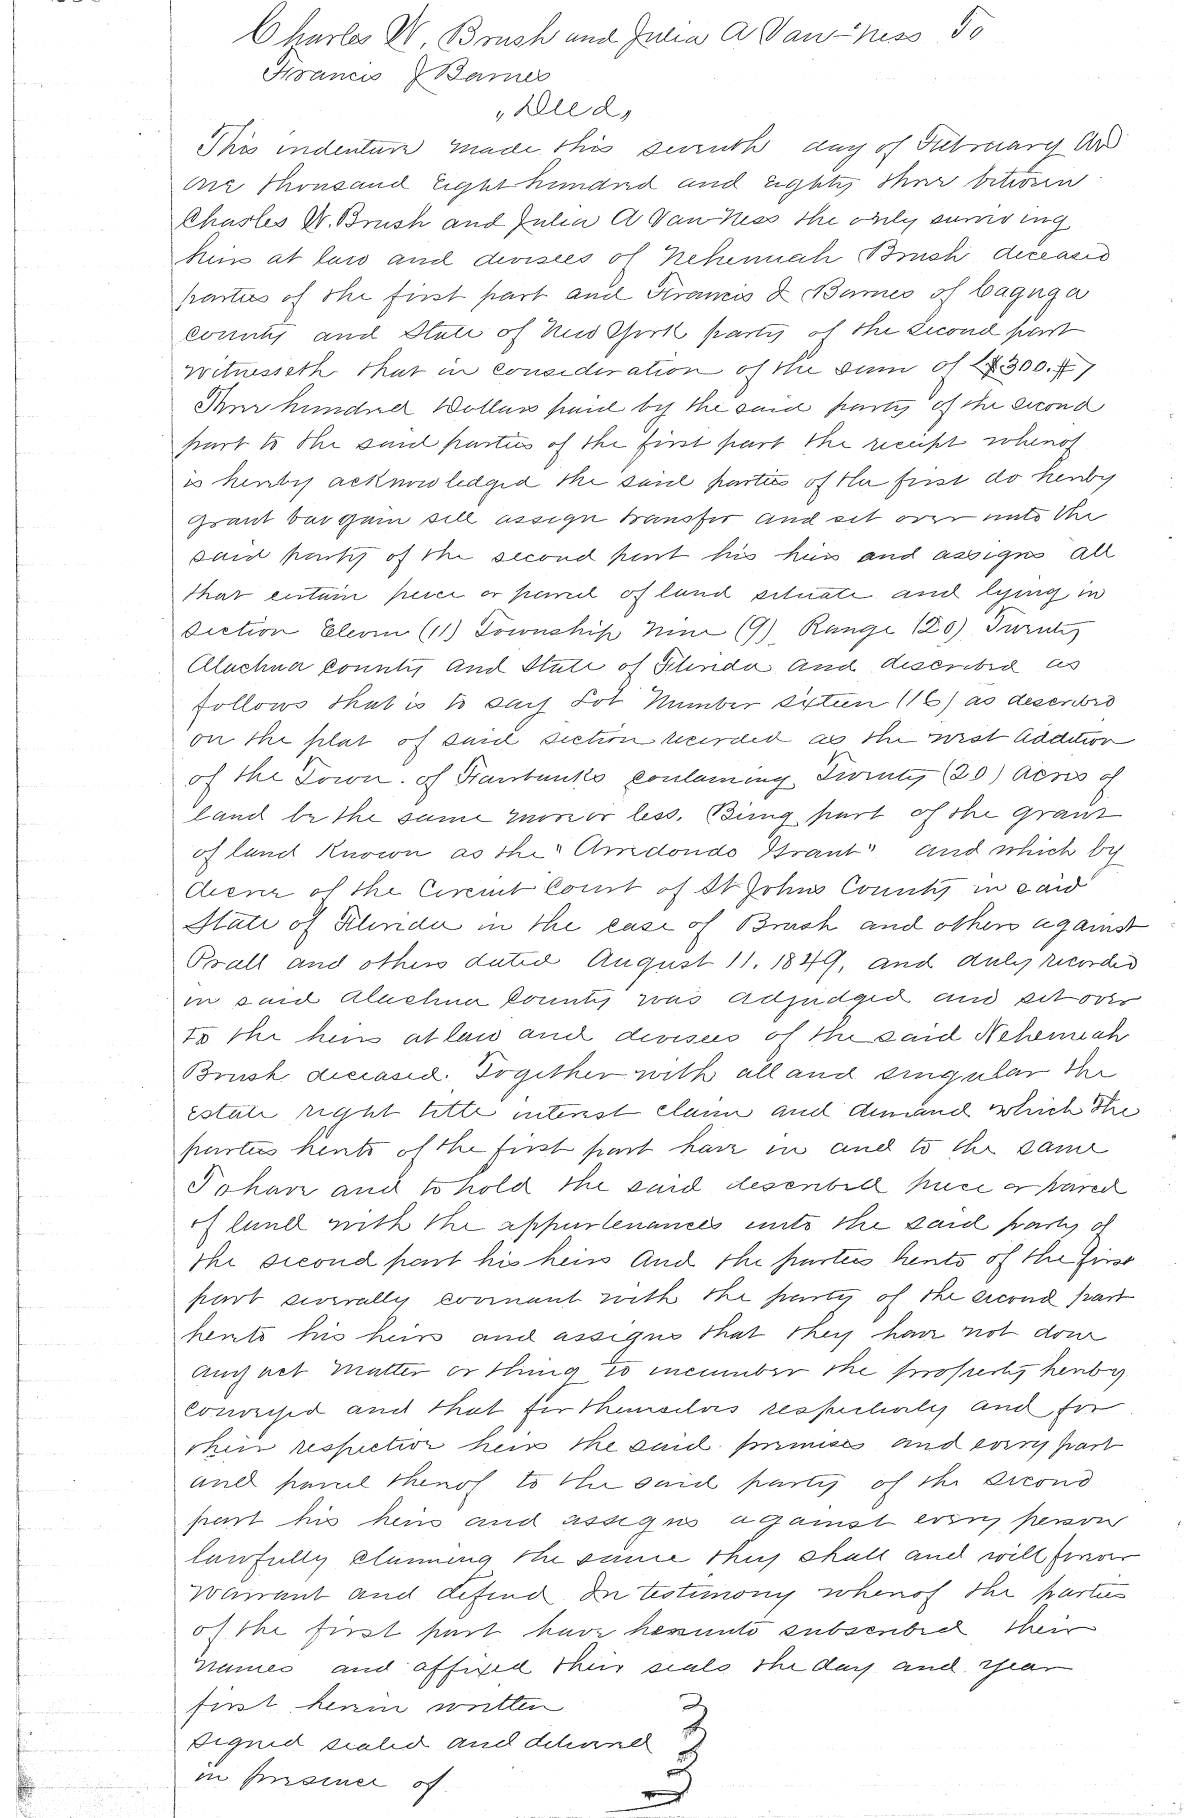 Charles W. Brush and Julia A Van-Ness To
Francis J Barnes
"Deed"
This indenture made this seventh day of February AD
one thousand Eight hundred and Eighty three between
Charles W. Brush and Julia A Van-Ness the only surviving
heirs at law and devisees of Nehemiah Brush deceased
parties of the first part and Francis J Barnes of Cayuga
County and State of New York party of the second part
witnesseth that in consideration of the sum of ($300.#)
Three hundred Dollars paid by the said party of the second
part to the said parties of the first part the receipt whereof
is hereby acknowledged the said parties of the first do hereby
grant bargain sell assign transfer and set over unto the
said party of the second part his heirs and assigns all
that certain piece or parcel of land situate and lying in
Section Eleven (11) Township Nine (9) Range (20) Twenty
Alachua County and State of Florida and described as
follows that is to say Lot Number sixteen (16) as described
on the plat of said section recorded as the west addition
of the Town. of Fairbanks containing Twenty (20) Acres of
land be the same more or less. Being part of the grant
of land Known as the "Arredondo Grant" and which by
decree of the Circuit Court of St Johns County in said
State of Florida in the case of Brush and others against
Prall and others dated August 11. 1849, and duly recorded
in said Alachua County was adjudged and set over
to the heirs at law and devisees of the said Nehemiah
Brush deceased. Together with all and singular the
estate right title interest claim and demand which the
parties hereto of the first part have in and to the same
To have and to hold the said described piece or parcel
of land with the appurtenances unto the said party of
the second part his heirs And the parties hereto of the first
part severally covenant with the party of the second part
hereto his heirs and assigns that they have not done
any act matter or thing to incumber the property hereby
conveyed and that for themselves respectively and for
their respective heirs the said premises and every part
and parcel thereof to the said party of the second
part his heirs and assigns against every person
lawfully claiming the same they shall and will forever
warrant and defend In testimony whereof the parties
of the first part have hereunto subscribed their
names and affixed their seals the day and year
first herein written
Signed sealed and delivered
in presence of